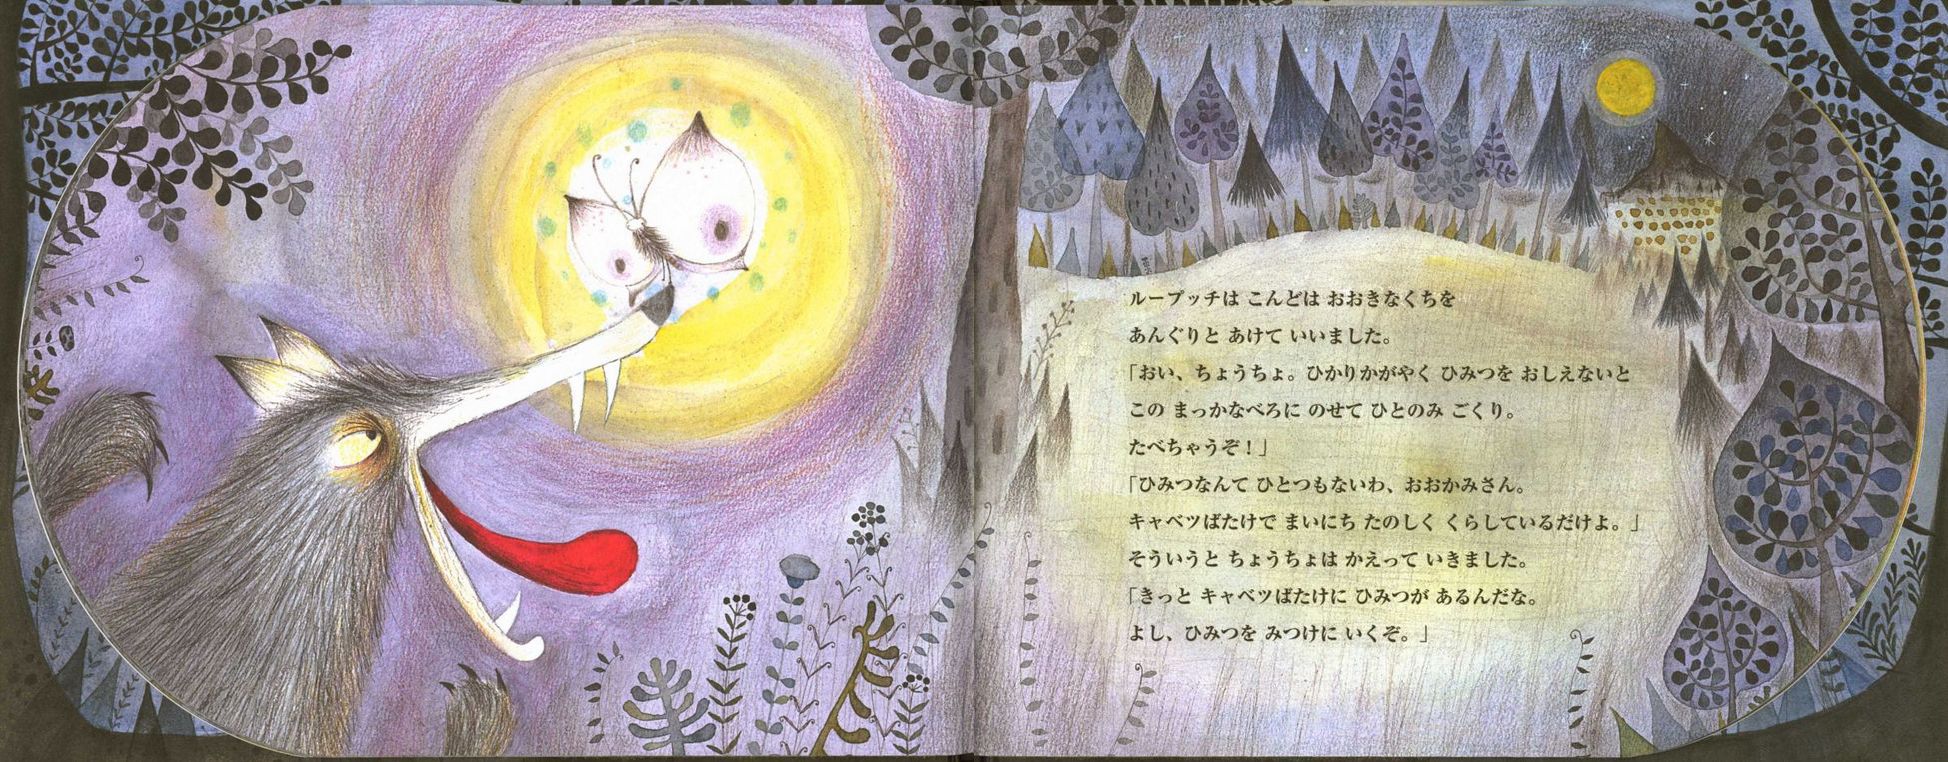 ループッチは こんどは おおきなくちを
あんぐりと あけて いいました。
「おい、ちょうちょ。ひかりかがやく ひみつを おしえないと
この まっかなべろに のせて ひとのみ ごくり。
たべちゃうぞ！」
「ひみつなんて ひとつもないわ、おおかみさん。
キャベツばたけで まいにち たのしく くらしているだけよ。」
そういうと ちょうちょは かえって いきました。
「きっと キャベツばたけに ひみつが あるんだな。
よし、ひみつを みつけに いくぞ。」